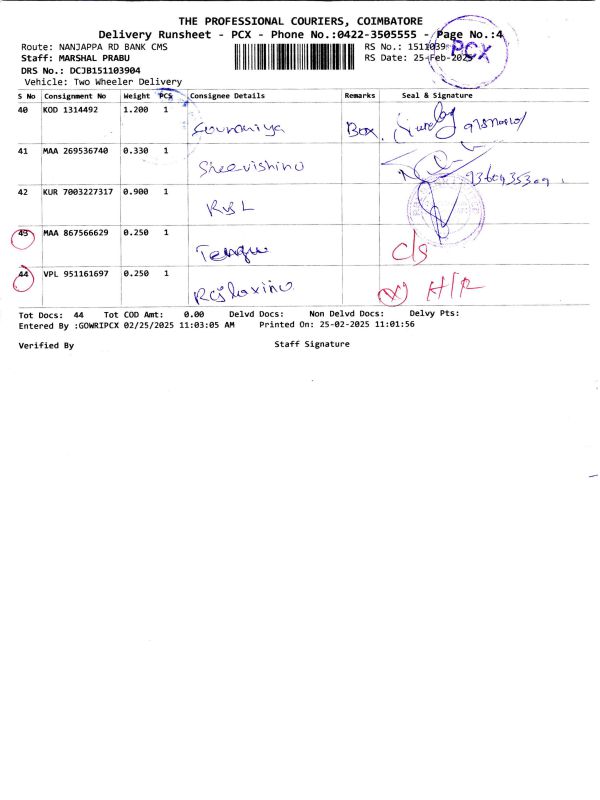 THE PROFESSIONAL COURIERS, COIMBATORE
Delivery Runsheet - PCX - Phone No.:0422-3505555 - Page No.:4
Route: NANJAPPA RD BANK CMS RS No.: 1511039
Staff: MARSHAL PRABU RS Date: 25-Feb-2025
PCX
DRS No.: DCJB151103904
Vehicle: Two Wheeler Delivery
S No Consignment No Weight PCS Consignee Details Remarks Seal & Signature
40 KOD 1314492 1.200 1 Box
41 MAA 269536740 0.330 1 Sreevishinu
42 KUR 7003227317 0.900 1 RBL
43 MAA 867566629 0.250 1 C/S
44 VPL 951161697 0.250 1
Tot Docs: 44 Tot COD Amt: 0.00 Delvd Docs: Non Delvd Docs: Delvy Pts:
Entered By :GOWRIPCX 02/25/2025 11:03:05 AM Printed On: 25-02-2025 11:01:56
Verified By Staff Signature